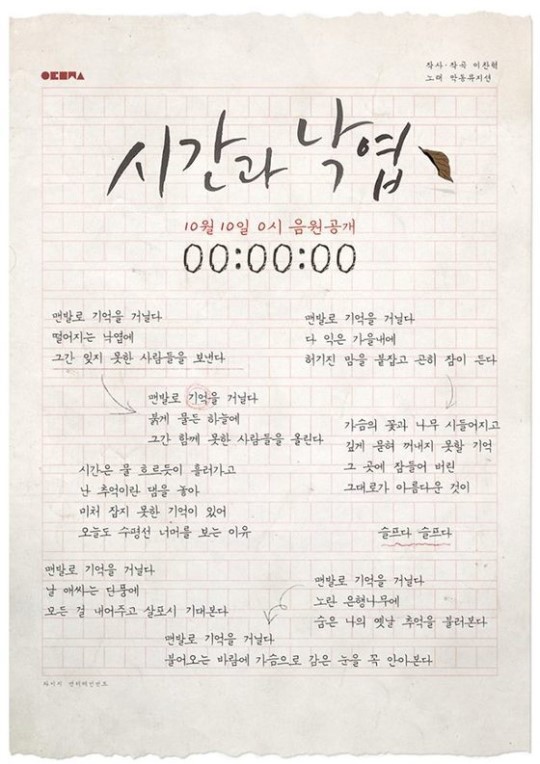 작사·작곡 이찬혁
노래 악동뮤지션
시간과 낙엽
10월 10일 0시 음원공개
00:00:00
맨발로 기억을 거닐다
떨어지는 낙엽에
그간 잊지 못한 사람들을 보낸다
맨발로 기억을 거닐다
붉게 물든 하늘에
그간 함께 못한 사람들을 올린다
시간은 물 흐르듯이 흘러가고
난 추억이란 댐을 놓아
미처 잡지 못한 기억이 있어
오늘도 수평선 너머를 보는 이유
맨발로 기억을 거닐다
날 애싸는 단풍에
모든 걸 내어주고 살포시 기대본다
맨발로 기억을 거닐다
다 익은 가을내에
허기진 맘을 붙잡고 곤히 잠이 든다
가슴의 꽃과 나무 시들어지고
깊게 묻혀 꺼내지 못할 기억
그 곳에 잠들어 버린
그대로가 아름다운 것이
슬프다 슬프다
맨발로 기억을 거닐다
노란 은행나무에
숨은 나의 옛날 추억을 불러본다
맨발로 기억을 거닐다
불어오는 바람에 가슴으로 감은 눈을 꼭 안아본다